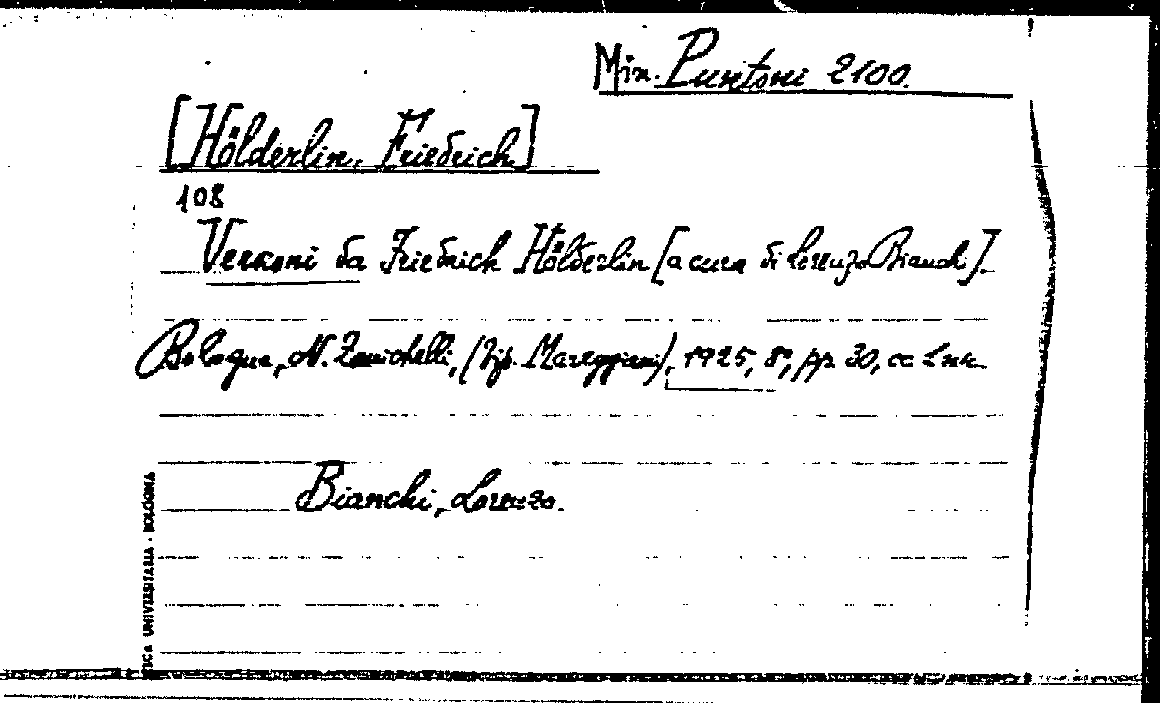 Min. Puntoni 2100.
[Hölderlin, Friedrich]
108
Versioni da Friedrich Hölderlin [a cura di Lorenzo Bianchi].
Bologna, N. Zanichelli, (Tip. Mareggiani), 1925, 8°, pp. 30, cc 1 nn.
Bianchi, Lorenzo.
TECA UNIVERSITARIA - BOLOGNA